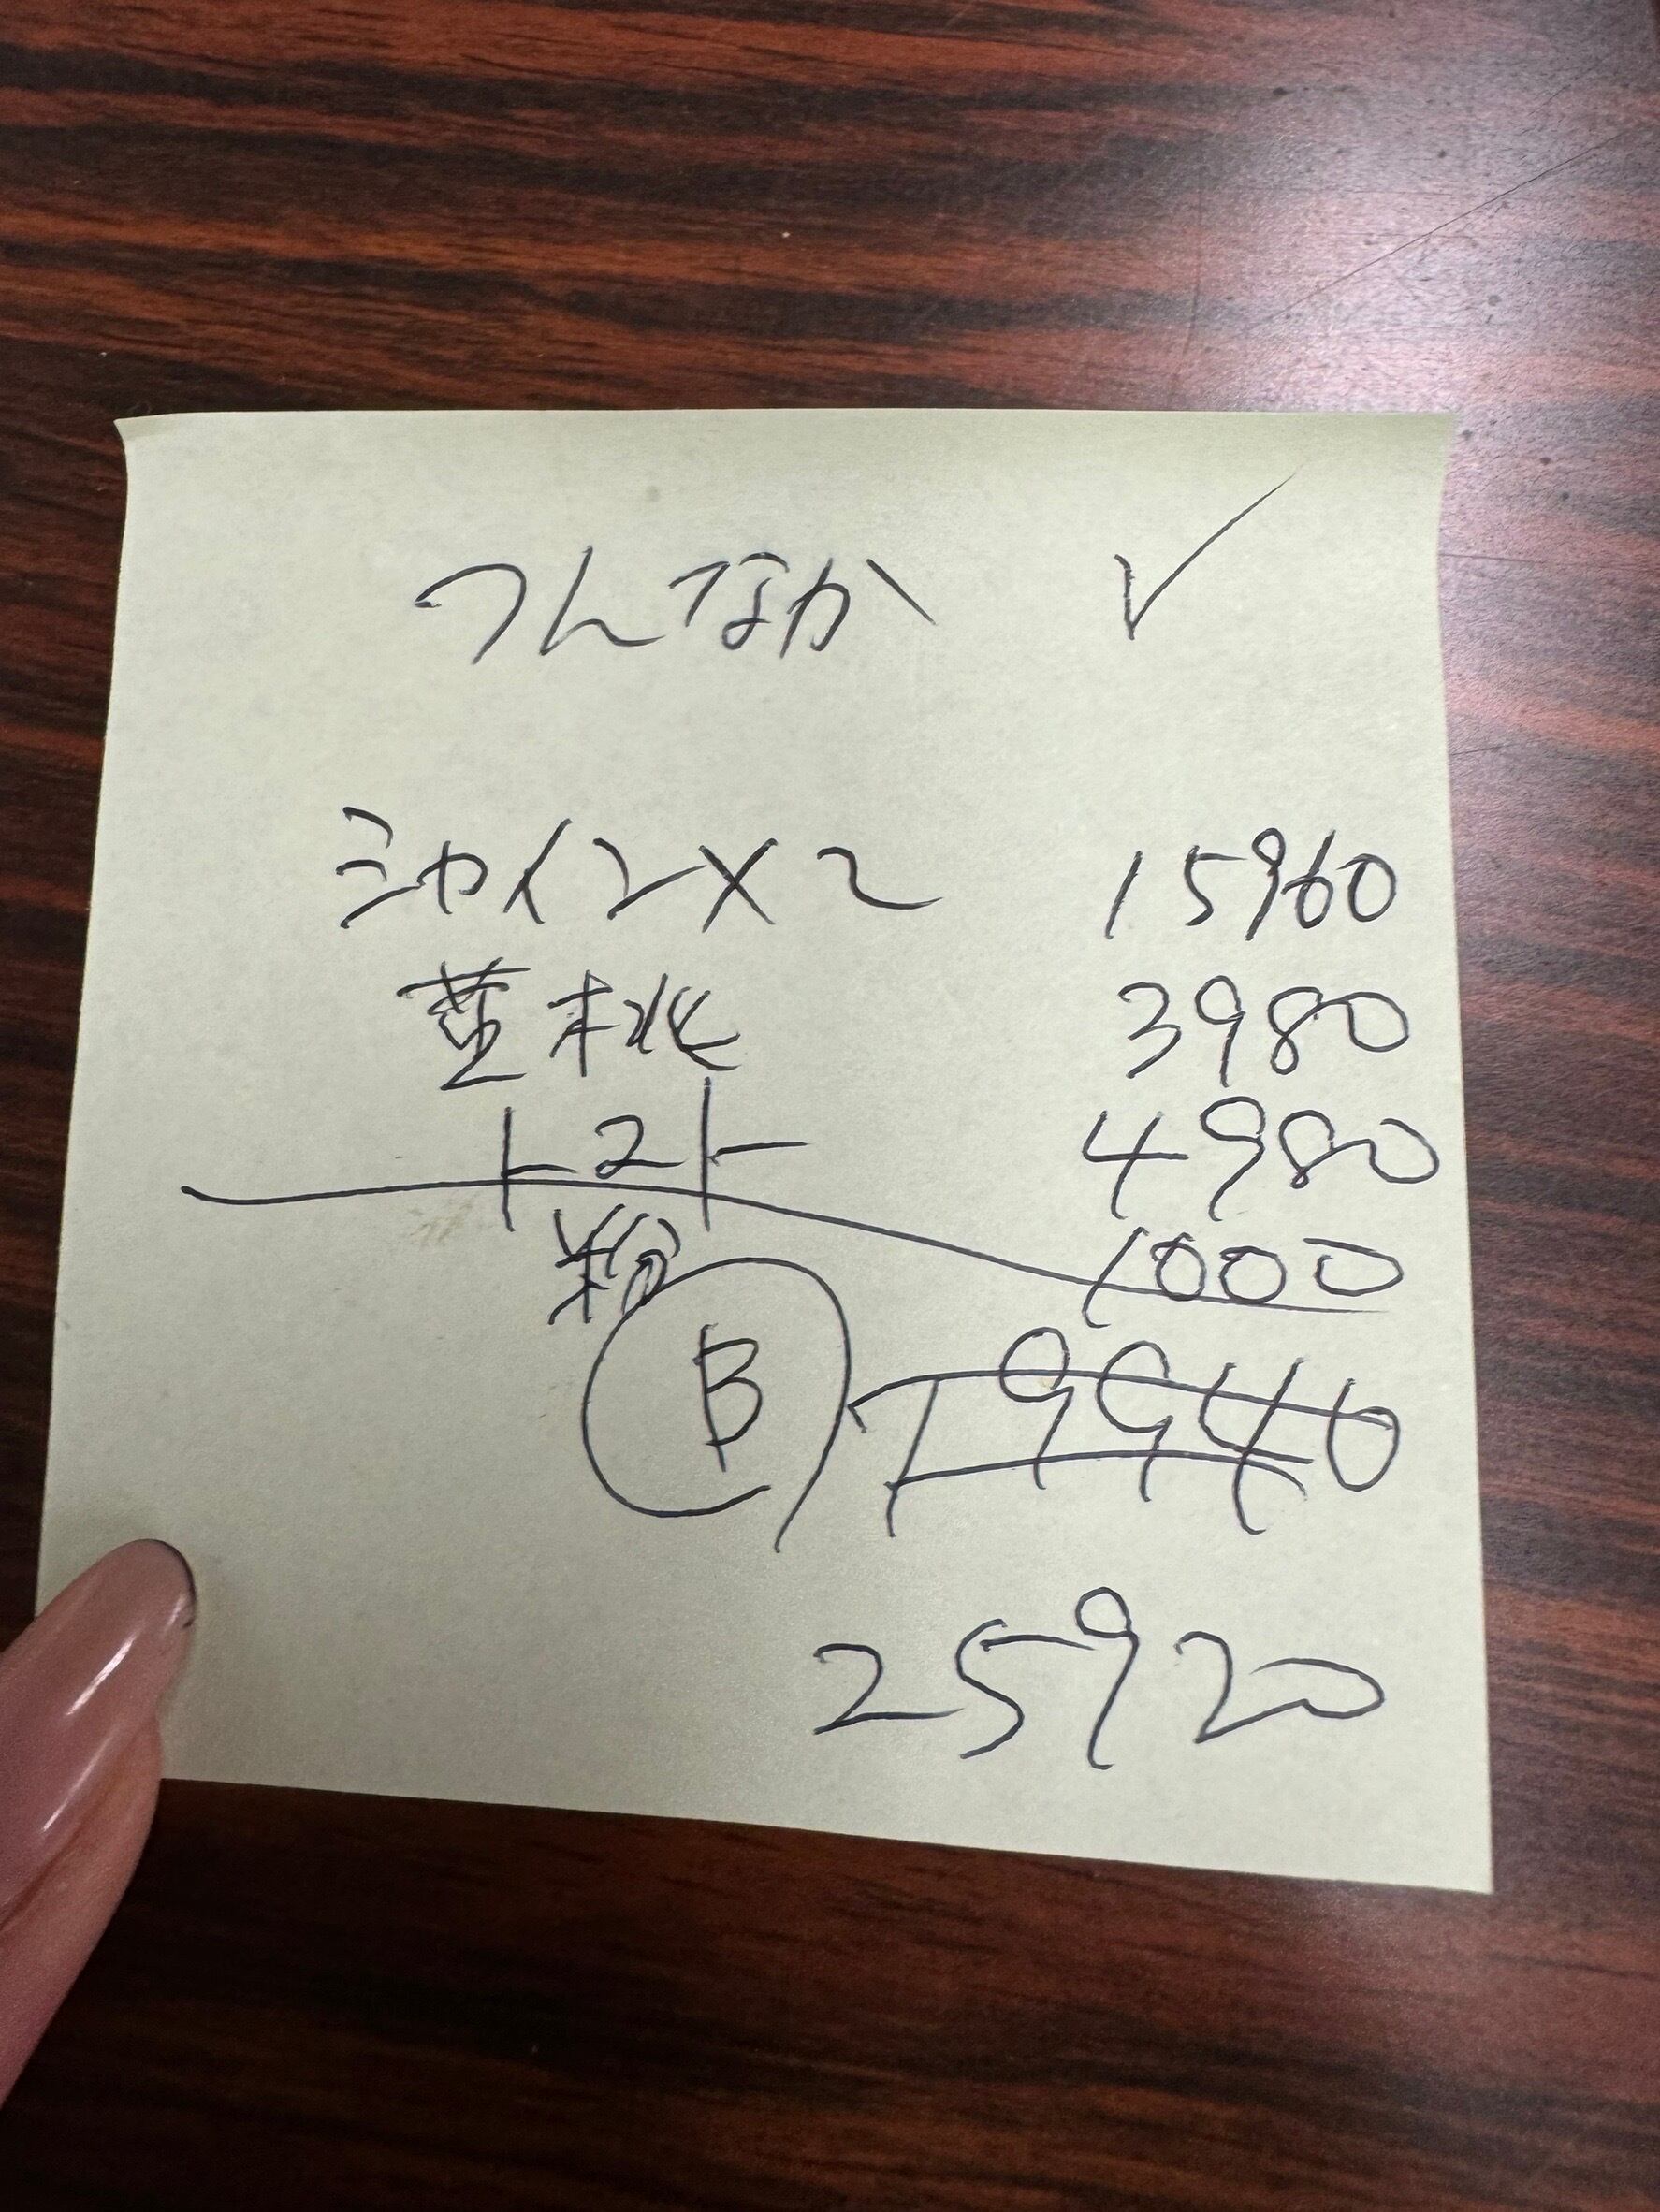 つんなか ✓
シャイン×2 15960
黄桃 3980
トマト 4980
粉 1000
B 19940
25920